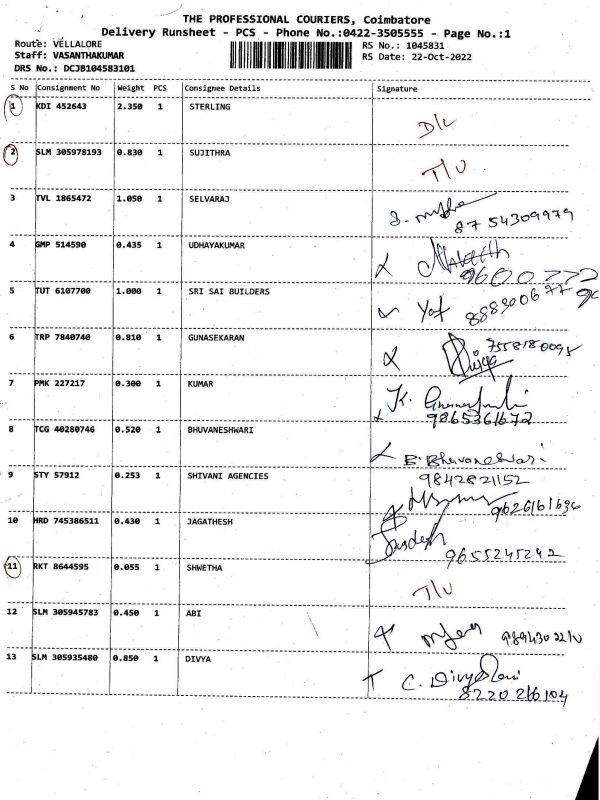 THE PROFESSIONAL COURIERS, Coimbatore
Delivery Runsheet - PCS - Phone No.:0422-3505555 - Page No.:1
Route: VELLALORE RS No.: 1045831
Staff: VASANTHAKUMAR RS Date: 22-Oct-2022
DRS No.: DCJB104583101
S No Consignment No Weight PCS Consignee Details Signature
1 KDI 452643 2.350 1 STERLING
D/L
2 SLM 305978193 0.830 1 SUJITHRA
T/U
3 TVL 1865472 1.050 1 SELVARAJ
8754309979
4 GMP 514590 0.435 1 UDHAYAKUMAR
5 TUT 6107700 1.000 1 SRI SAI BUILDERS
6 TRP 7840740 0.810 1 GUNASEKARAN
7558180095
7 PMK 227217 0.300 1 KUMAR
K.
9865361672
8 TCG 40280746 0.520 1 BHUVANESHWARI
B. Bhuvaneshwari
9842821152
9 STY 57912 0.253 1 SHIVANI AGENCIES
9626161636
10 HRD 745386511 0.430 1 JAGATHESH
9655245242
11 RKT 8644595 0.055 1 SHWETHA
T/U
12 SLM 305945783 0.450 1 ABI
13 SLM 305935480 0.850 1 DIVYA
C. Divya Rani
8220266104